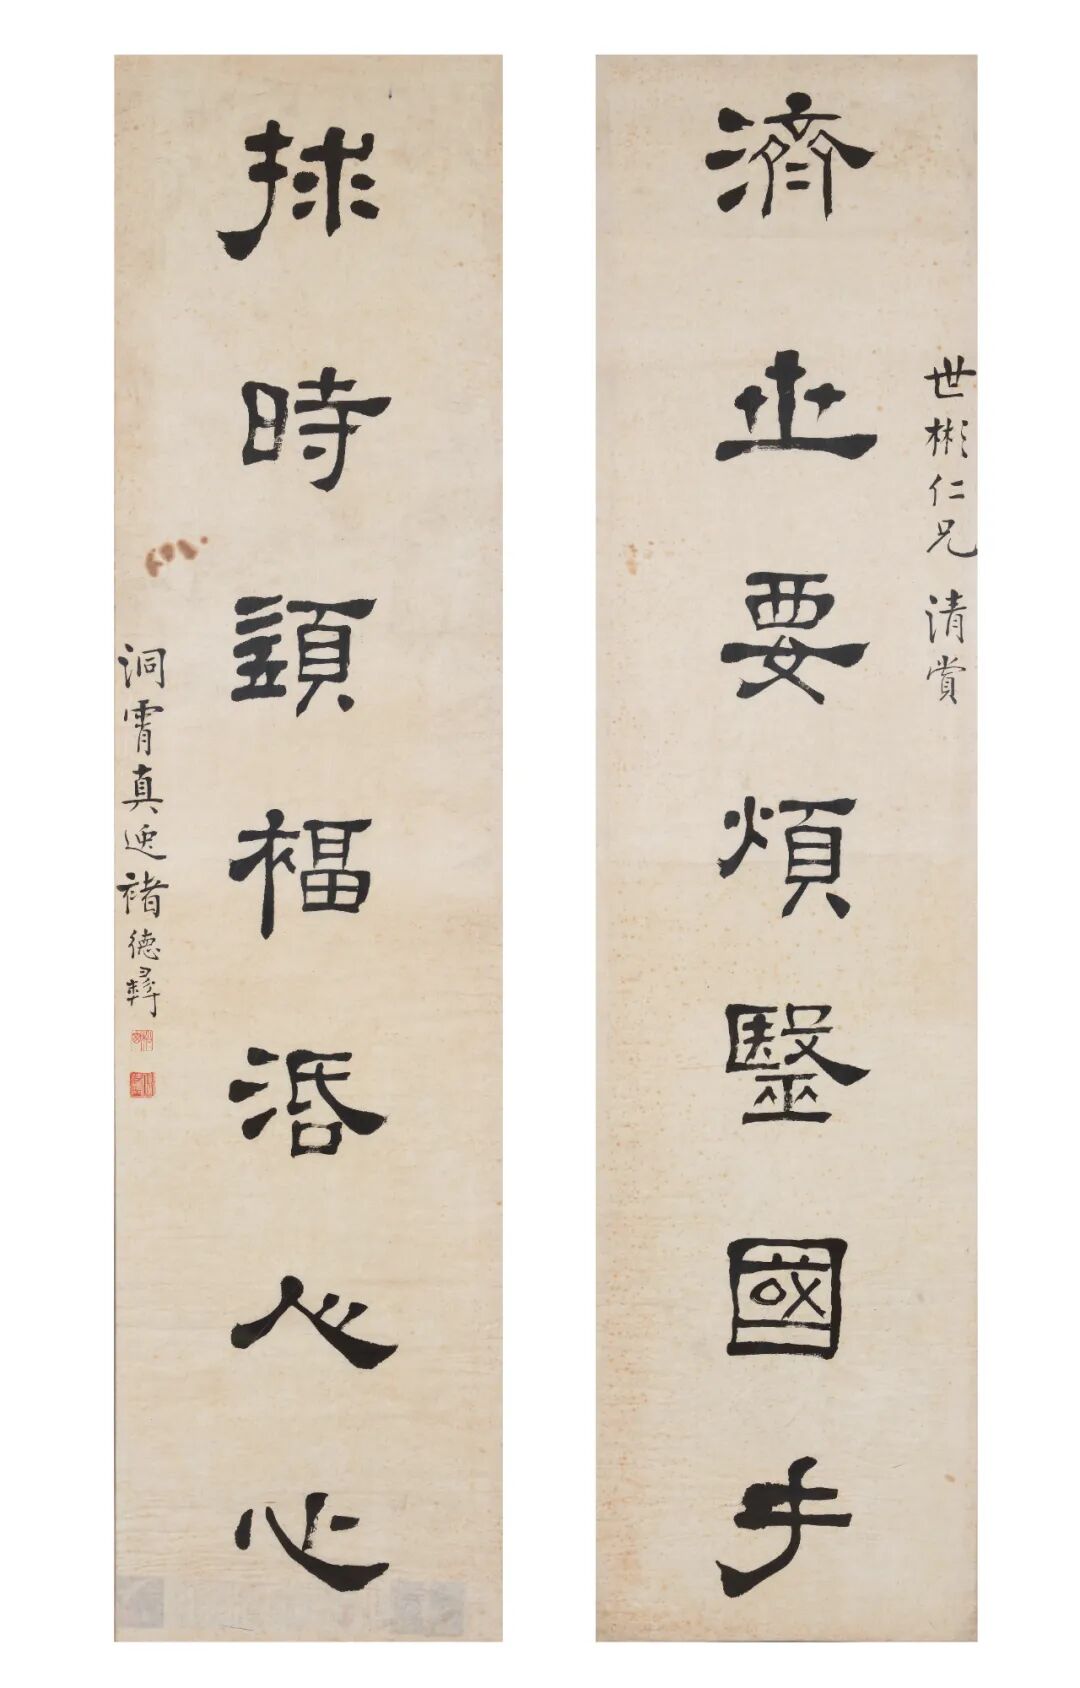 世彬仁兄 清賞
濟世要煩毉國手
捄時須福活人心
洞霄真逸褚德彝